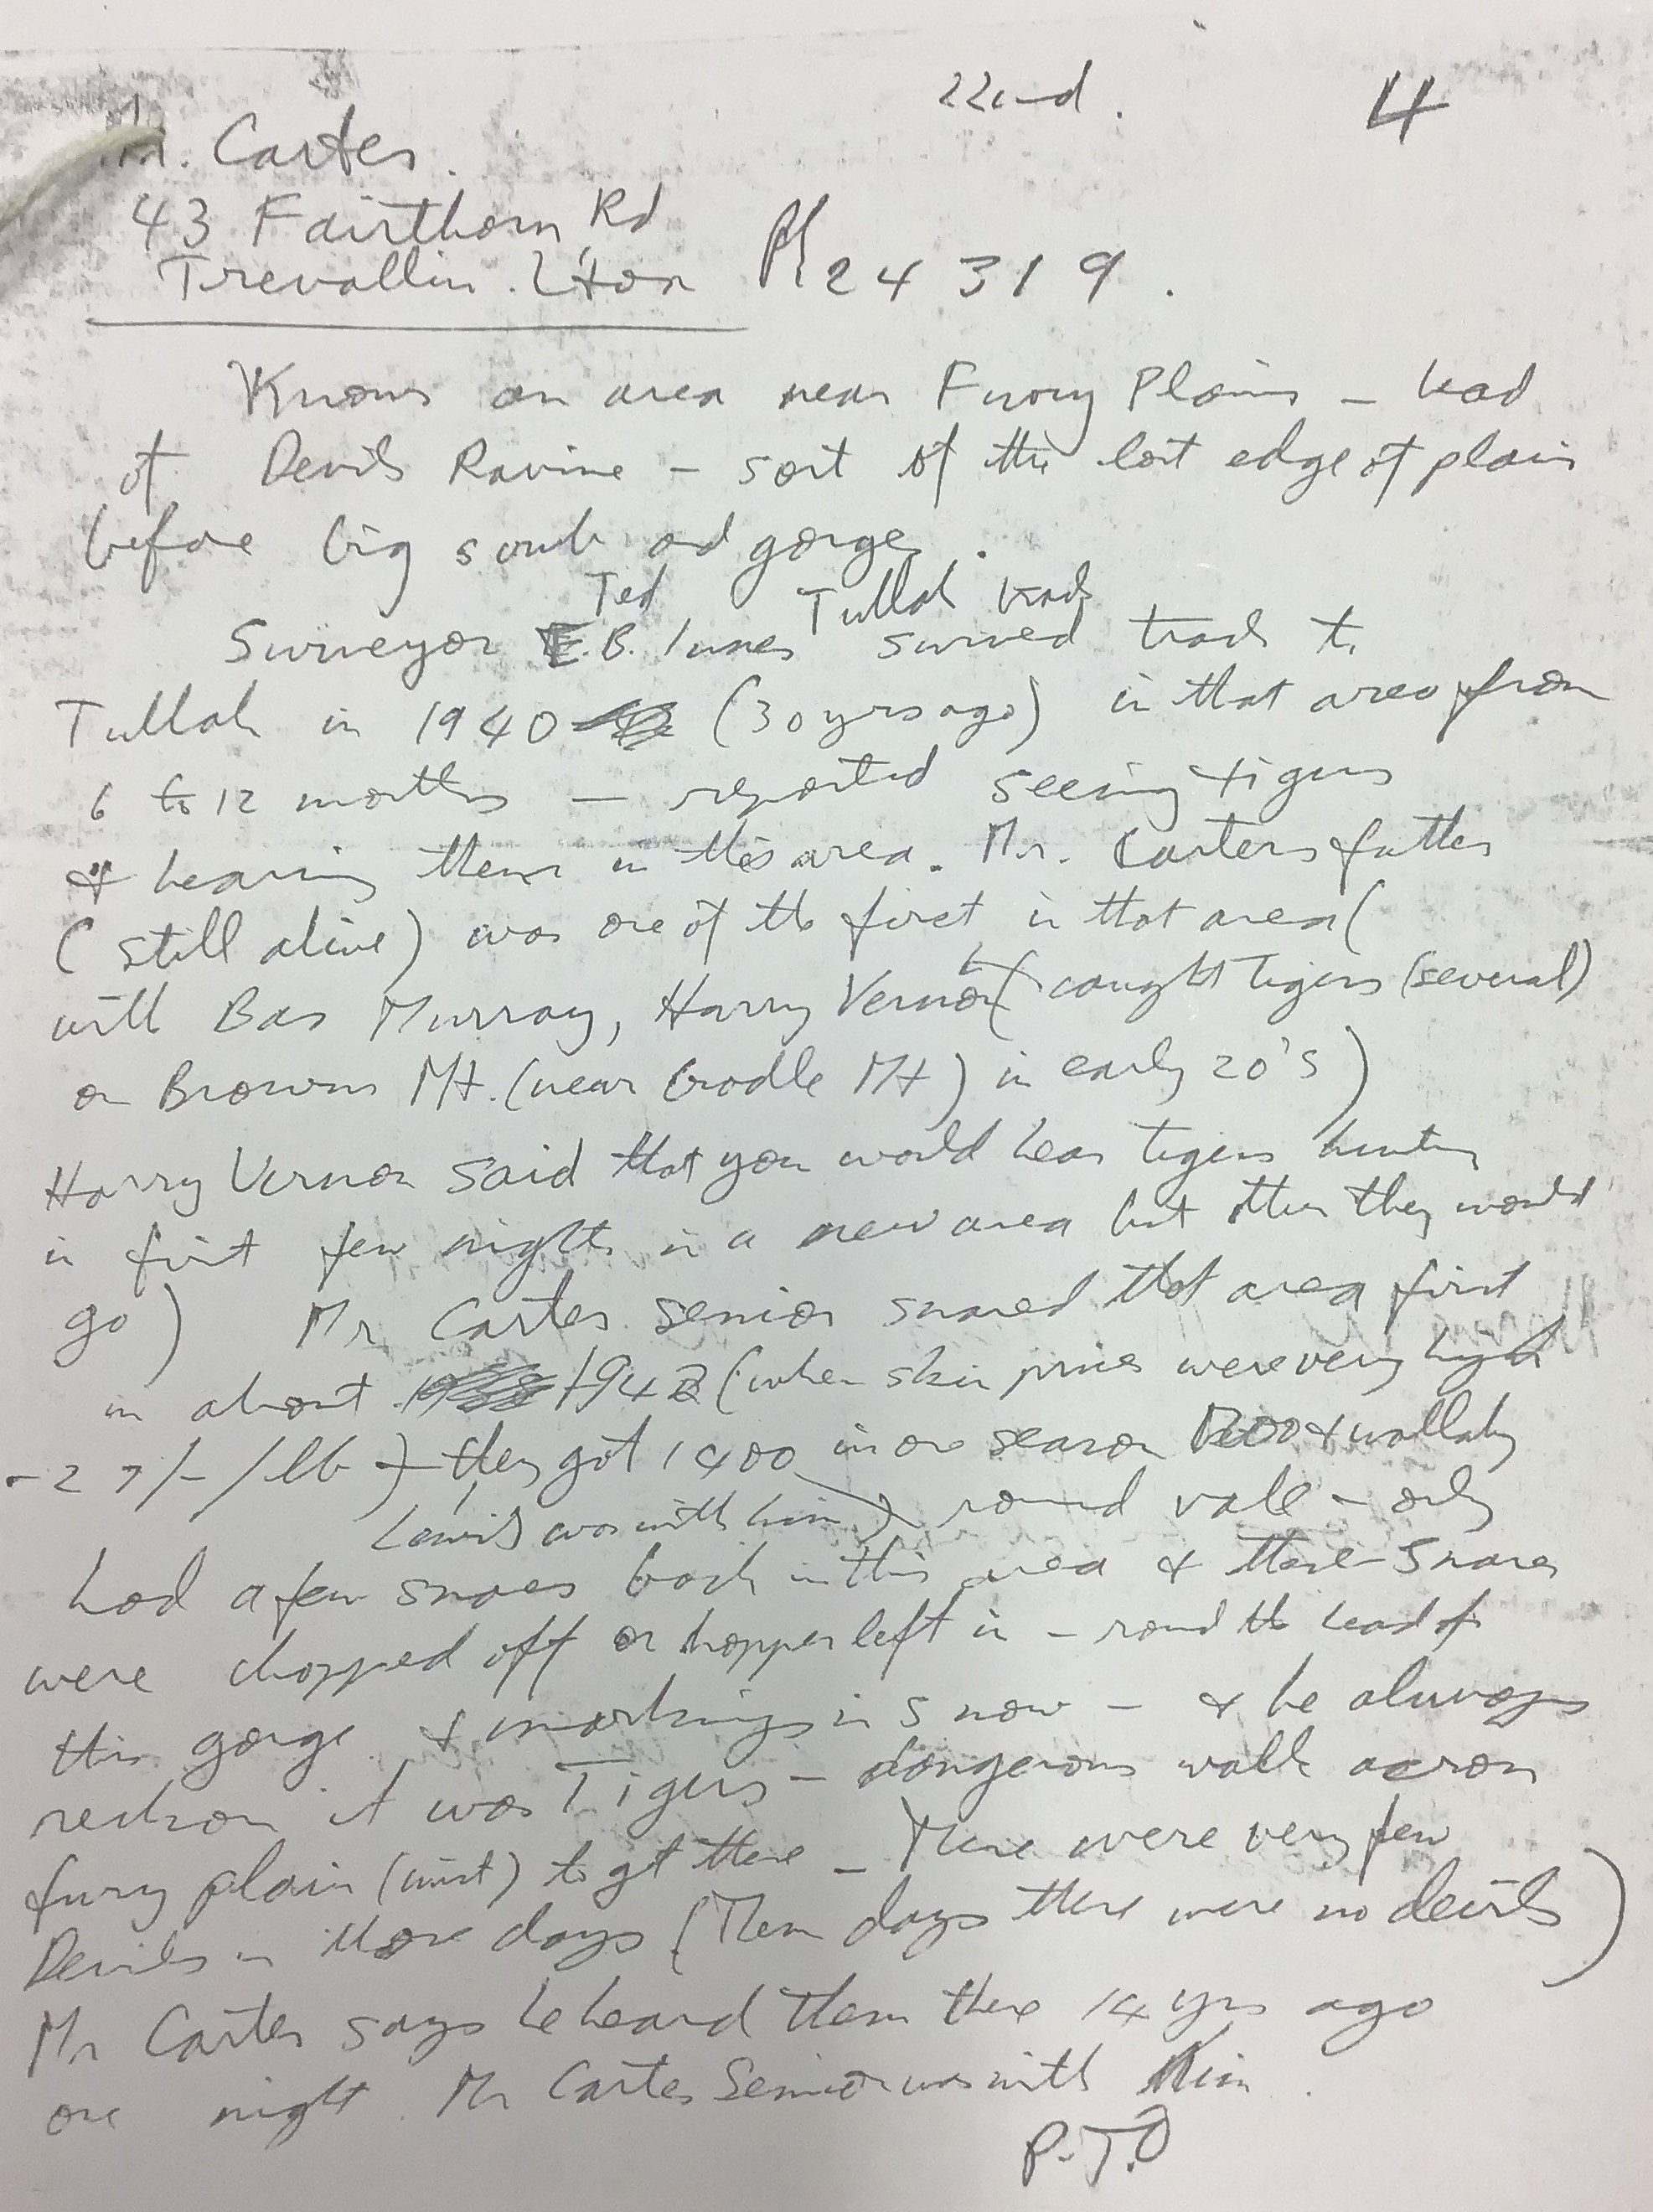 22nd. 4
M. Carter.
43 Fairthorn Rd
Trevallin. L'ton Ph 24319.
Knows an area near Fury Plains – head
of Devils Ravine – sort of the last edge of plain
before big scrub and gorge.
Ted Tullah track
Surveyor E.B. Innes surved track to
Tullah in 1940 (30 yrs ago) in that area from
6 to 12 months – reported seeing tigers
& hearing them in this area. Mr. Carters father
(still alive) was one of the first in that area (
with Bas Murray, Harry Vernon (caught Tigers (several)
on Browns Mt. (near Cradle Mt) in early 20's)
Harry Vernon said that you would hear tigers hunting
in first few nights in a new area but then they would
go) Mr Carter senior snared that area first
in about 1942 (when skin prices were very high
- 27/- /lb) – they got 1400 in one season & wallaby
Lewis was with him) round vale – only
had a few snares back in this area & these snares
were chopped off or hopper left in – round the head of
this gorge & markings in snow – & he always
reckon it was Tigers – dangerous walk across
fury plain (mist) to get there – There were very few
Devils in those days (Them days there were no devils)
Mr Carter says he heard them there 14 yrs ago
one night. Mr Carter Senior was with him.
P.T.O